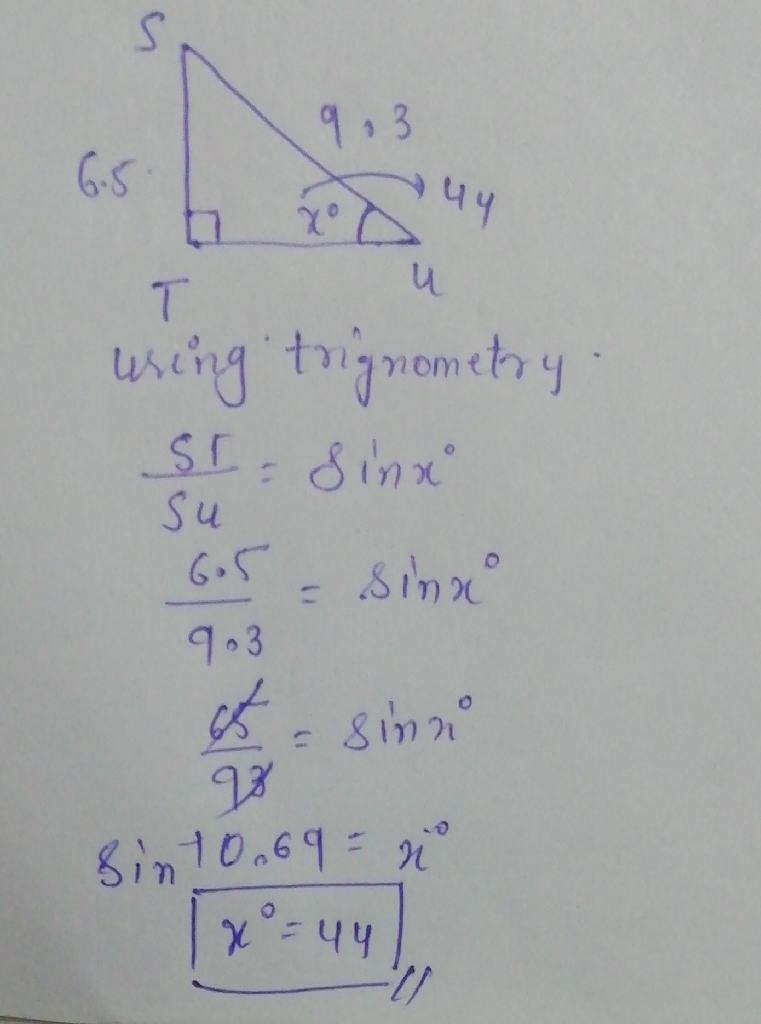 S
9.3
6.5
x° 44
T
u
using trignometry.
ST/SU = Sinx°
6.5/9.3 = Sinx°
65/93 = Sinx°
Sin⁻¹0.69 = x°
x° = 44